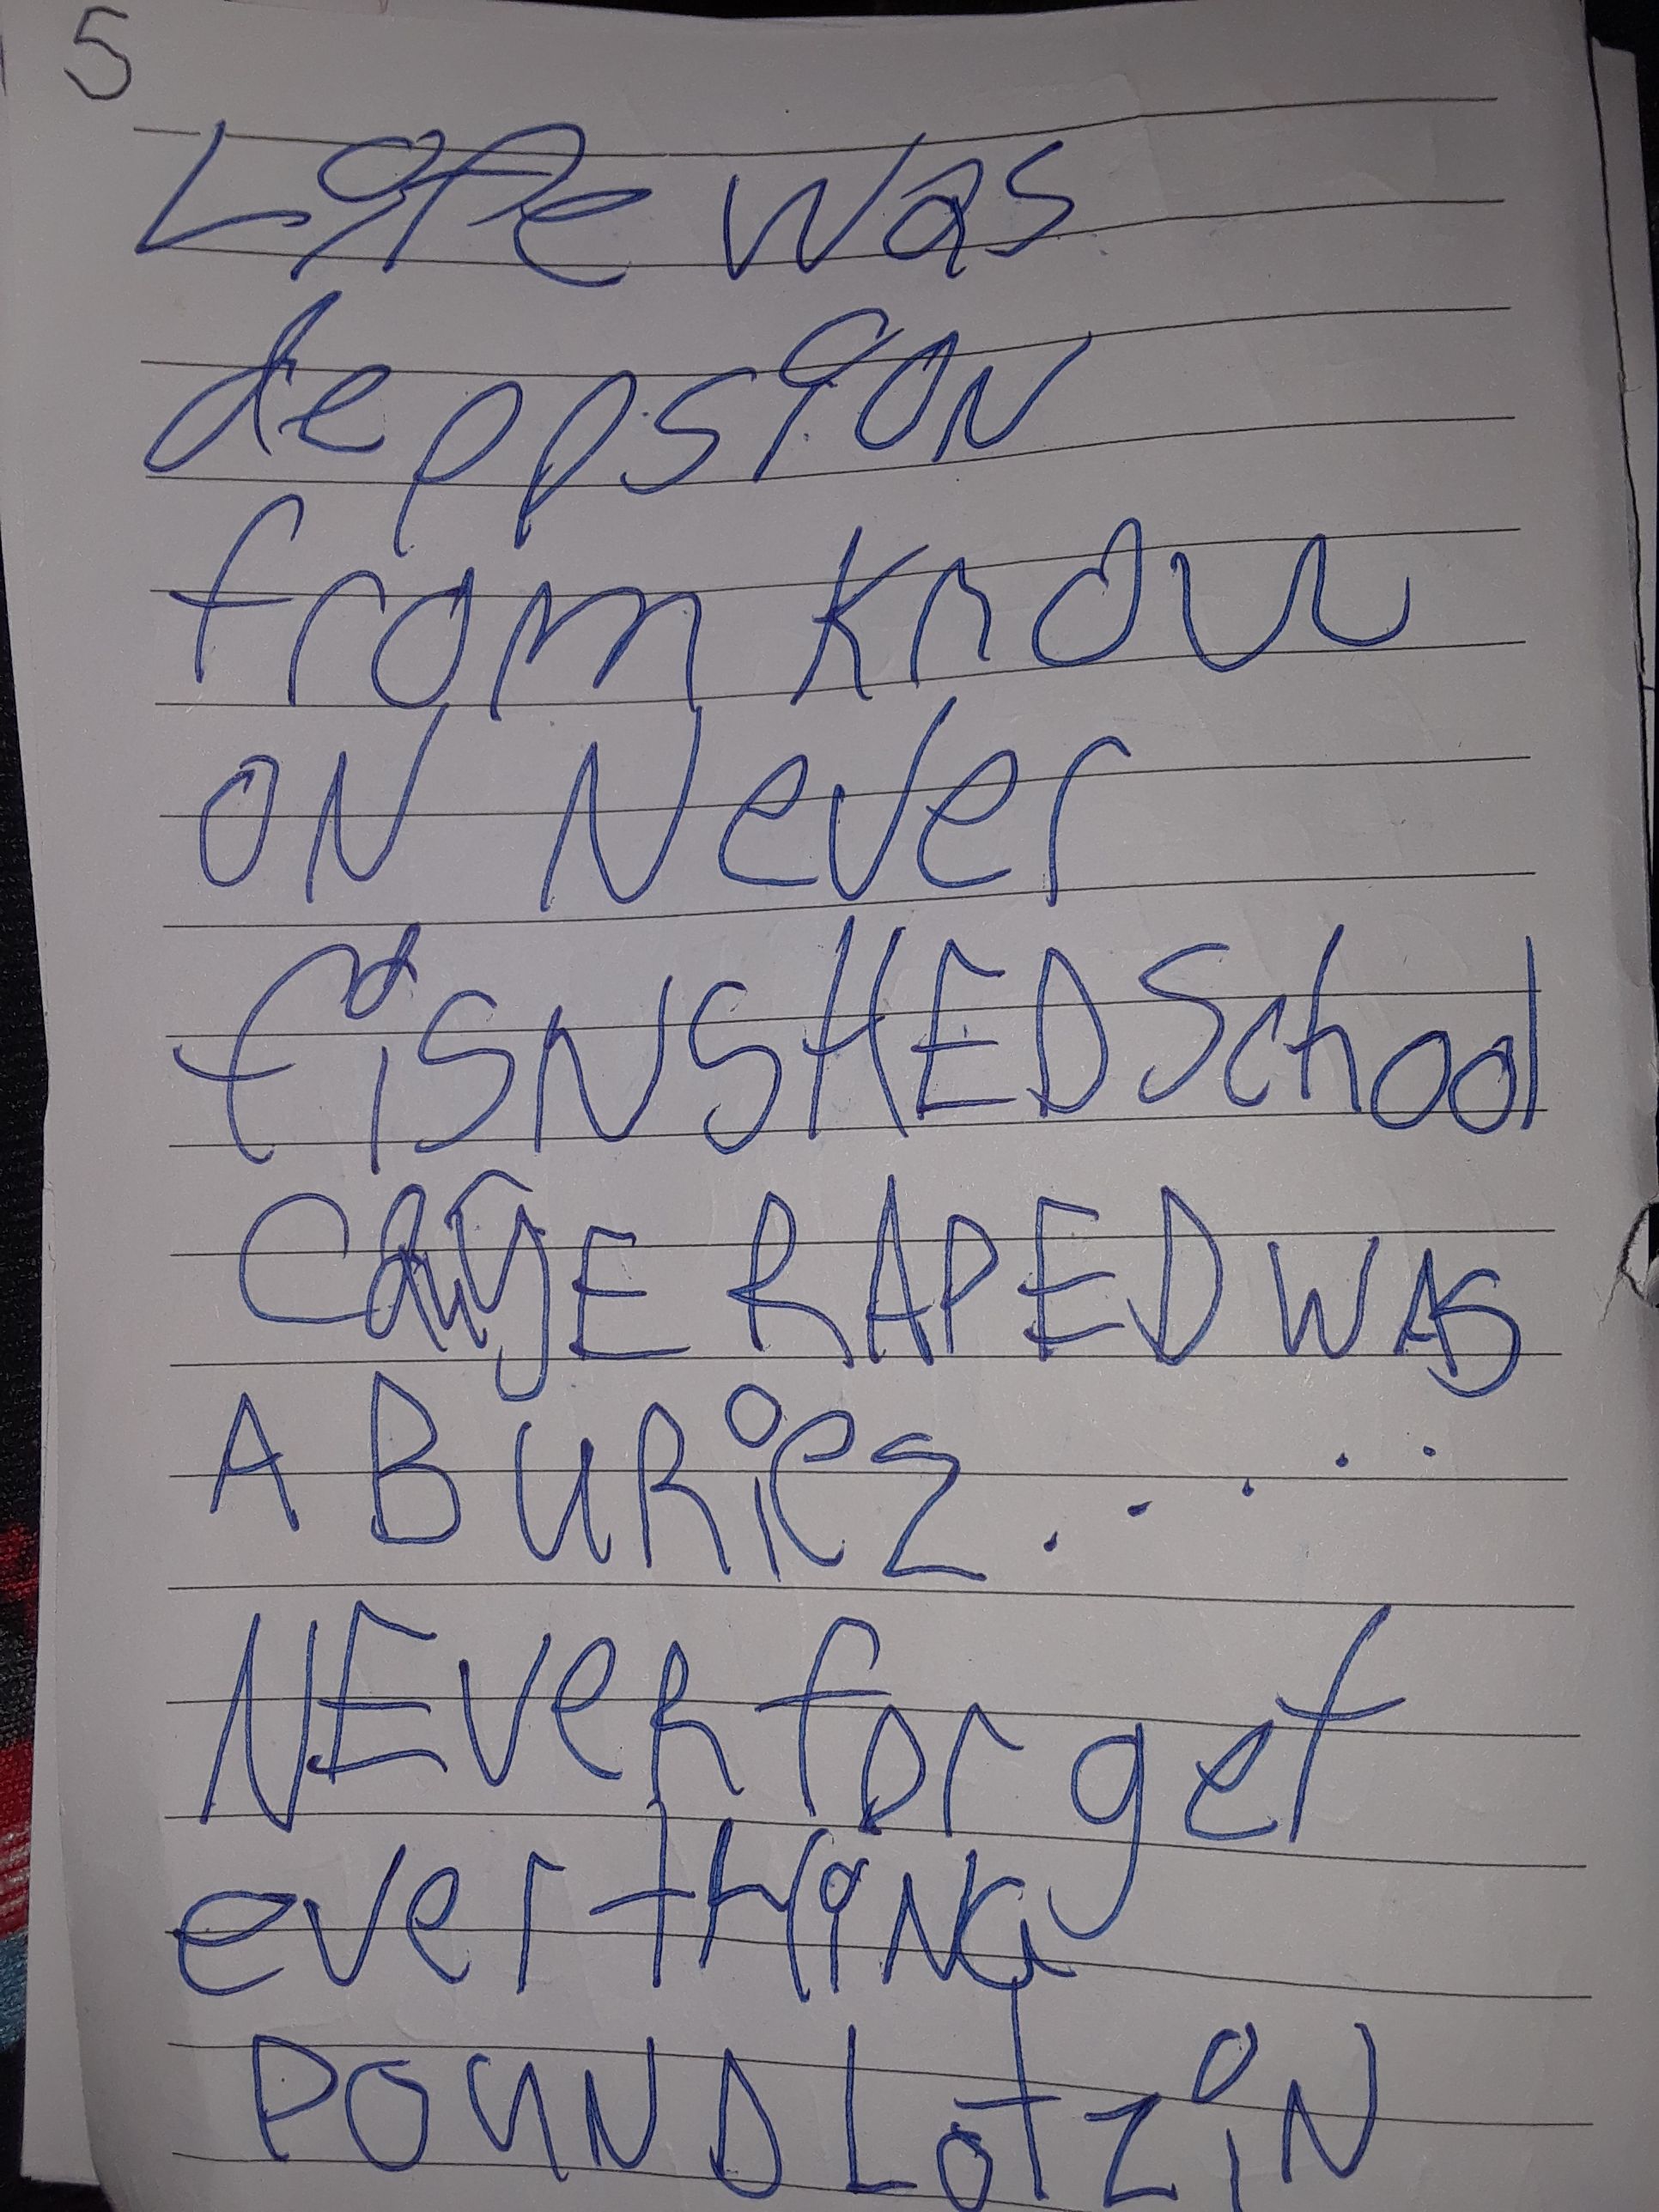 5
Life was
deppsion
from know
on Never
fisNSHED School
RAPED WAS
A BURiez.....
NEVeR forget
everthing
POUND Lotz iN